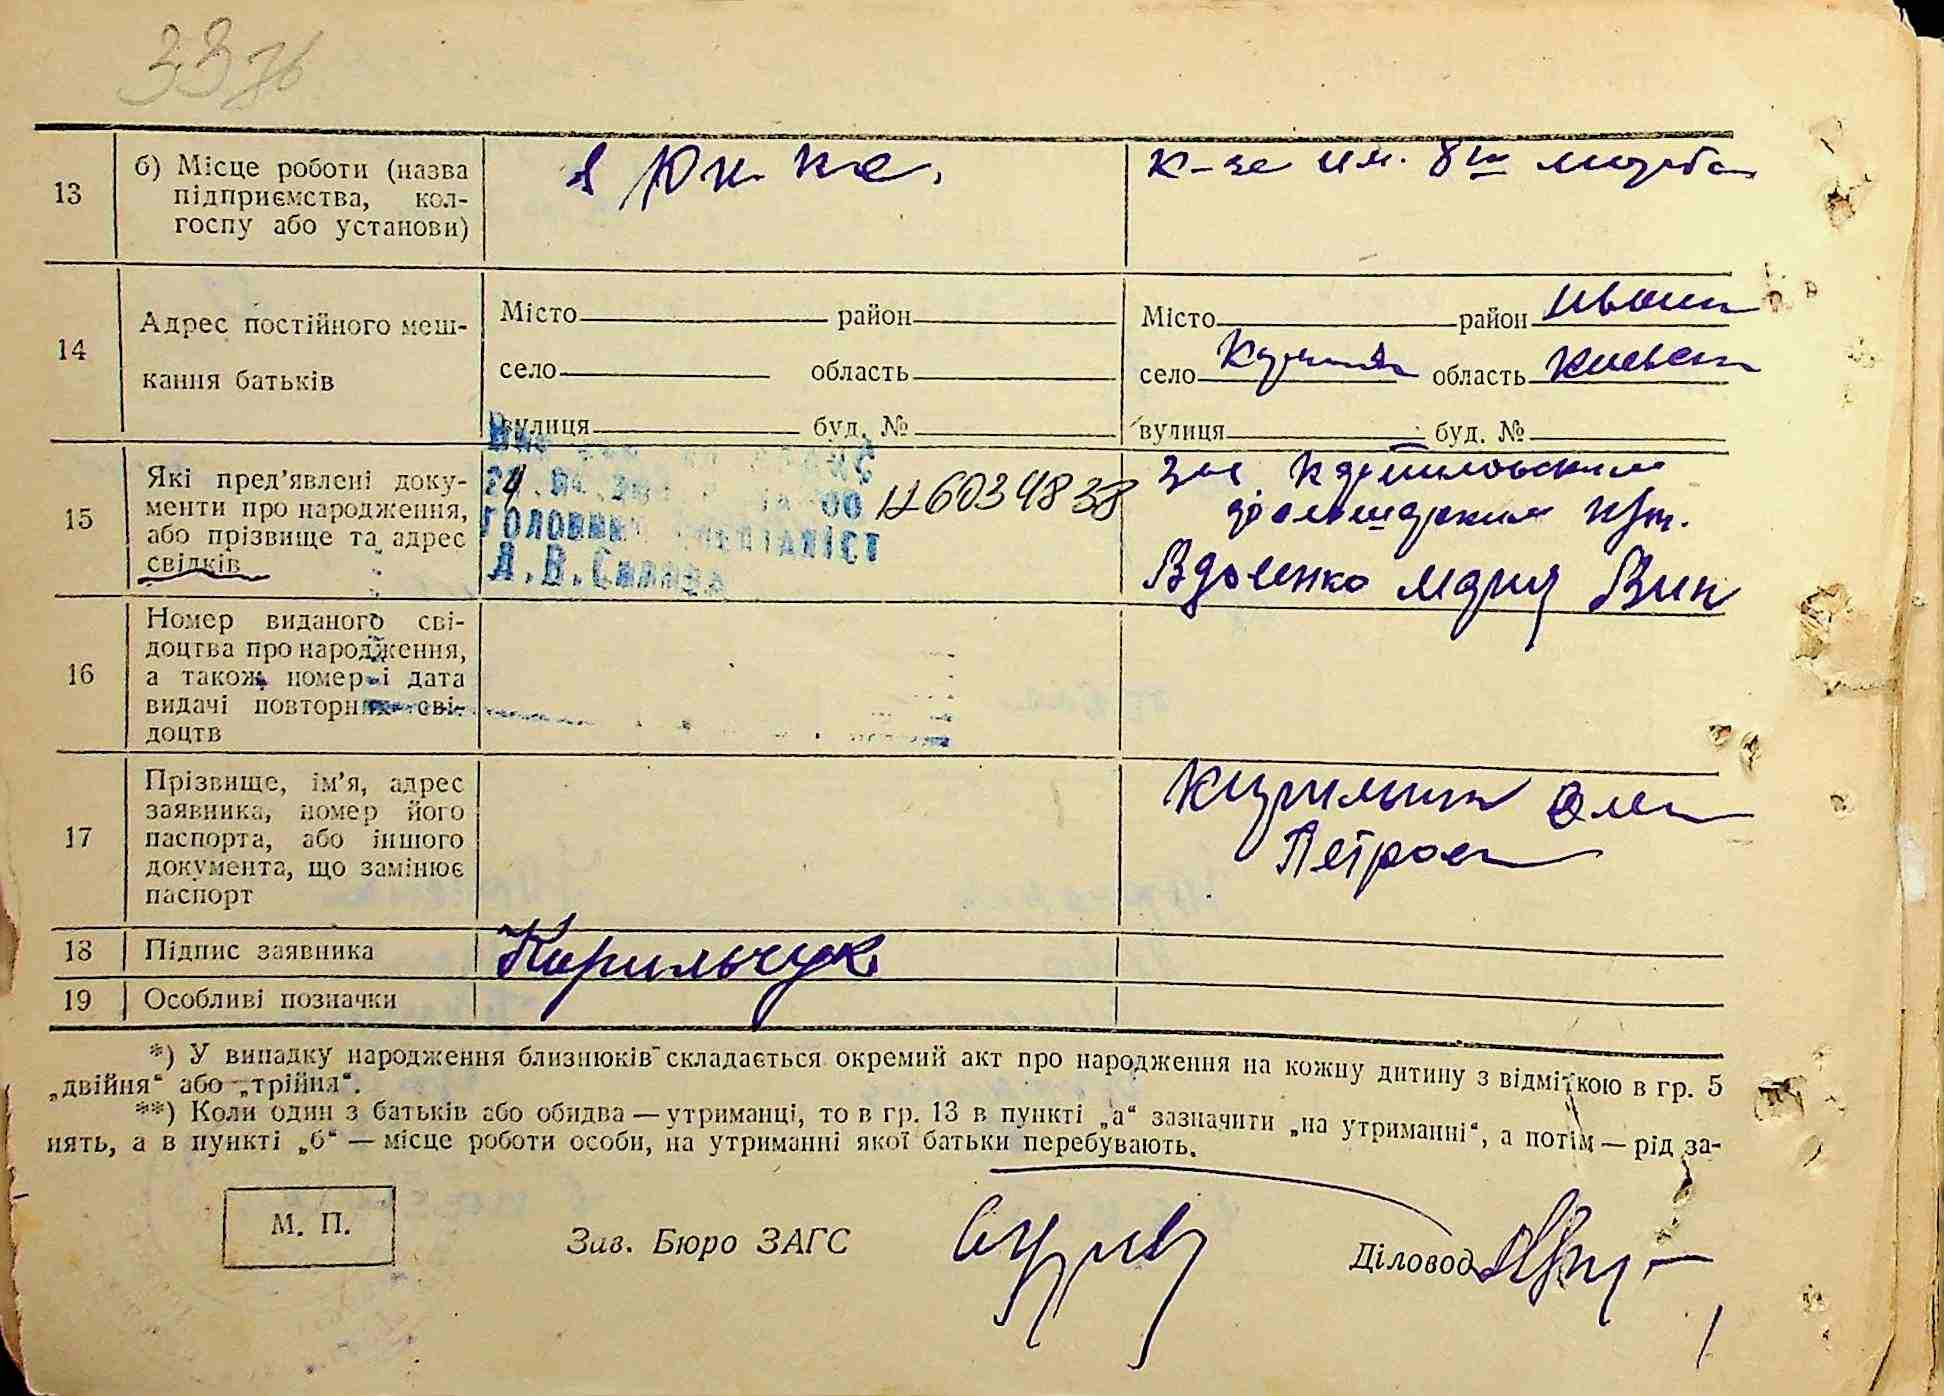 13
б) Місце роботи (назва
підприємства, кол-
госпу або установи)
к-зе им. 8го марта
14
Адрес постійного меш-
кання батьків
Місто район
село область
вулиця буд. №
Місто район Иванк
село область Киевск
вулиця буд. №
15
Які пред'явлені доку-
менти про народження,
або прізвище та адрес
свідків
А. В.
6034838
Вдовенко Мария
16
Номер виданого сві-
доцтва про народження,
а також номер і дата
видачі повторних сві-
доцтв
17
Прізвище, ім'я, адрес
заявника, номер його
паспорта, або іншого
документа, що замінює
паспорт
Петров
18
Підпис заявника
Кирильчук
19
Особливі позначки
*) У випадку народження близнюків складається окремий акт про народження на кожну дитину з відміткою в гр. 5
„двійня“ або „трійня“.
**) Коли один з батьків або обидва — утриманці, то в гр. 13 в пункті „а“ зазначити „на утриманні“, а потім — рід за-
нять, а в пункті „б“ — місце роботи особи, на утриманні якої батьки перебувають.
М. П.
Зав. Бюро ЗАГС
Діловод